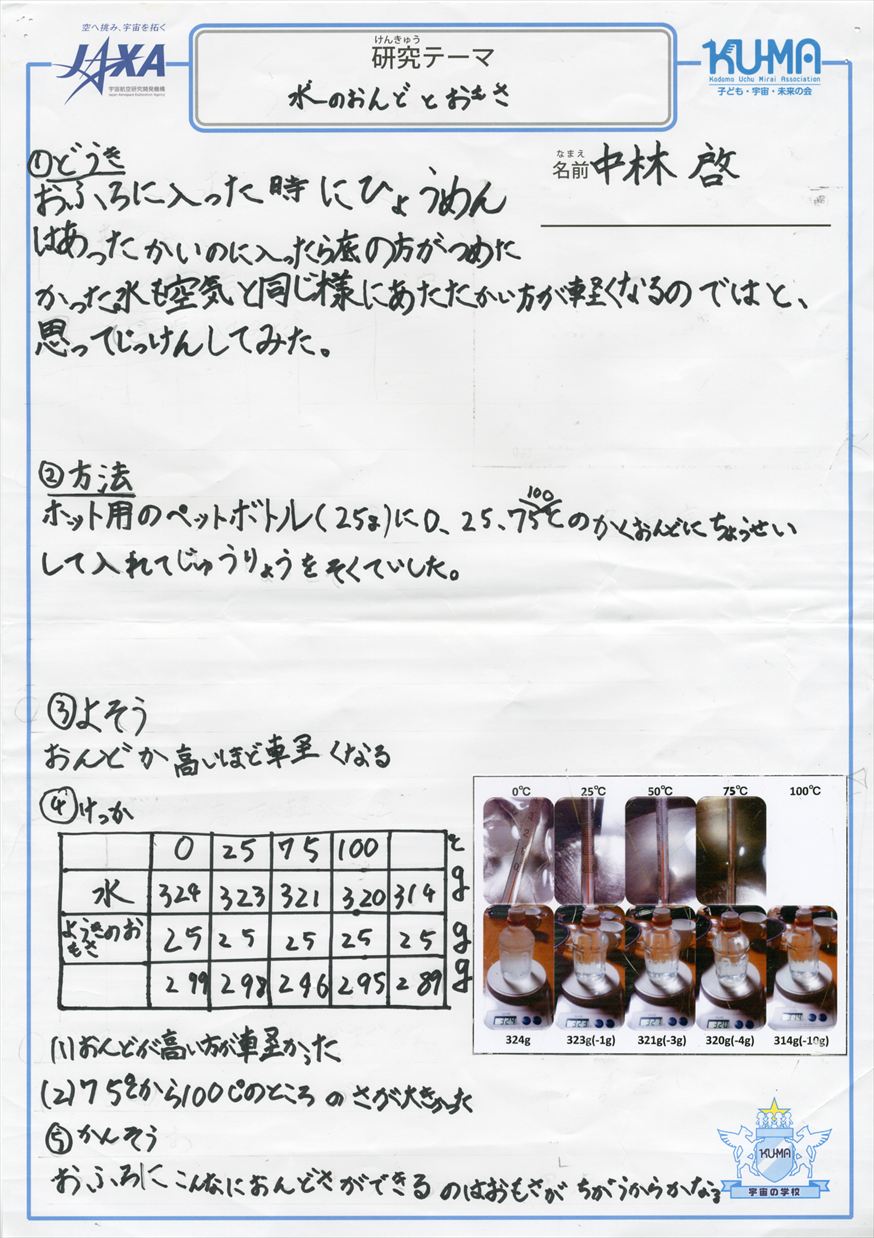 空へ挑み、宇宙を拓く
JAXA
宇宙航空研究開発機構
Japan Aerospace Exploration Agency
けんきゅう
研究テーマ
水のおんどとおもさ
KU-MA
Kodomo Uchu Mirai Association
子ども・宇宙・未来の会
なまえ
名前 中林 啓
①どうき
おふろに入った時にひょうめん
はあったかいのに入ったら底の方がつめた
かった。水も空気と同じ様にあたたかい方が軽くなるのではと、
思ってじっけんしてみた。
②方法
100
ホット用のペットボトル(25g)に0、25、75℃のかくおんどにちょうせい
して入れてじゅうりょうをそくていした。
③よそう
おんどか高いほど軽くなる
④けっか
0 25 75 100 ℃
水 324 323 321 320 314 g
ようきのおもさ 25 25 25 25 25 g
299 298 296 295 289 g
0℃ 25℃ 50℃ 75℃ 100℃
324g 323g(-1g) 321g(-3g) 320g(-4g) 314g(-10g)
(1)おんどが高い方が軽かった
(2)75℃から100℃のところのさが大きかった
⑤かんそう
おふろにこんなにおんどさができるのはおもさがちがうからかなぁ
KU-MA
宇宙の学校